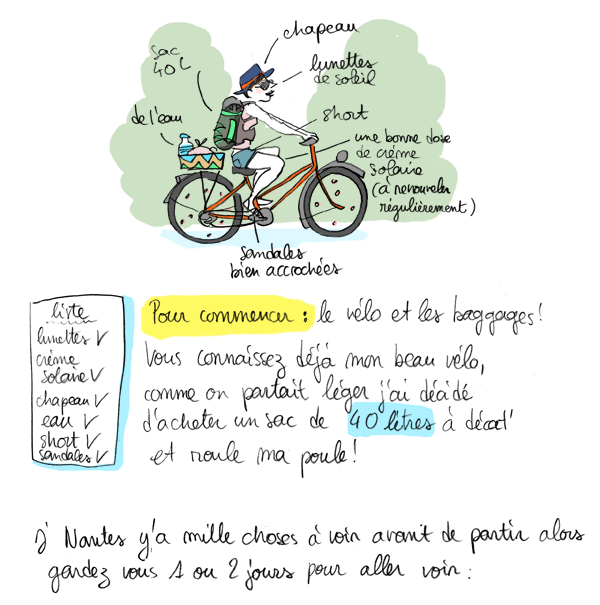 chapeau
sac
40L
lunettes
de soleil
de l'eau
short
une bonne dose
de crème
solaire
(à renouveler
régulièrement)
sandales
bien accrochées
liste
lunettes ✓
crème
solaire ✓
chapeau ✓
eau ✓
short ✓
sandales ✓
Pour commencer : le vélo et les baggages!
Vous connaissez déjà mon beau vélo,
comme on partait léger j'ai décidé
d'acheter un sac de 40 litres à décat'
et roule ma poule!
Nantes y'a mille choses à voir avant de partir alors
gardez vous 1 ou 2 jours pour aller voir :